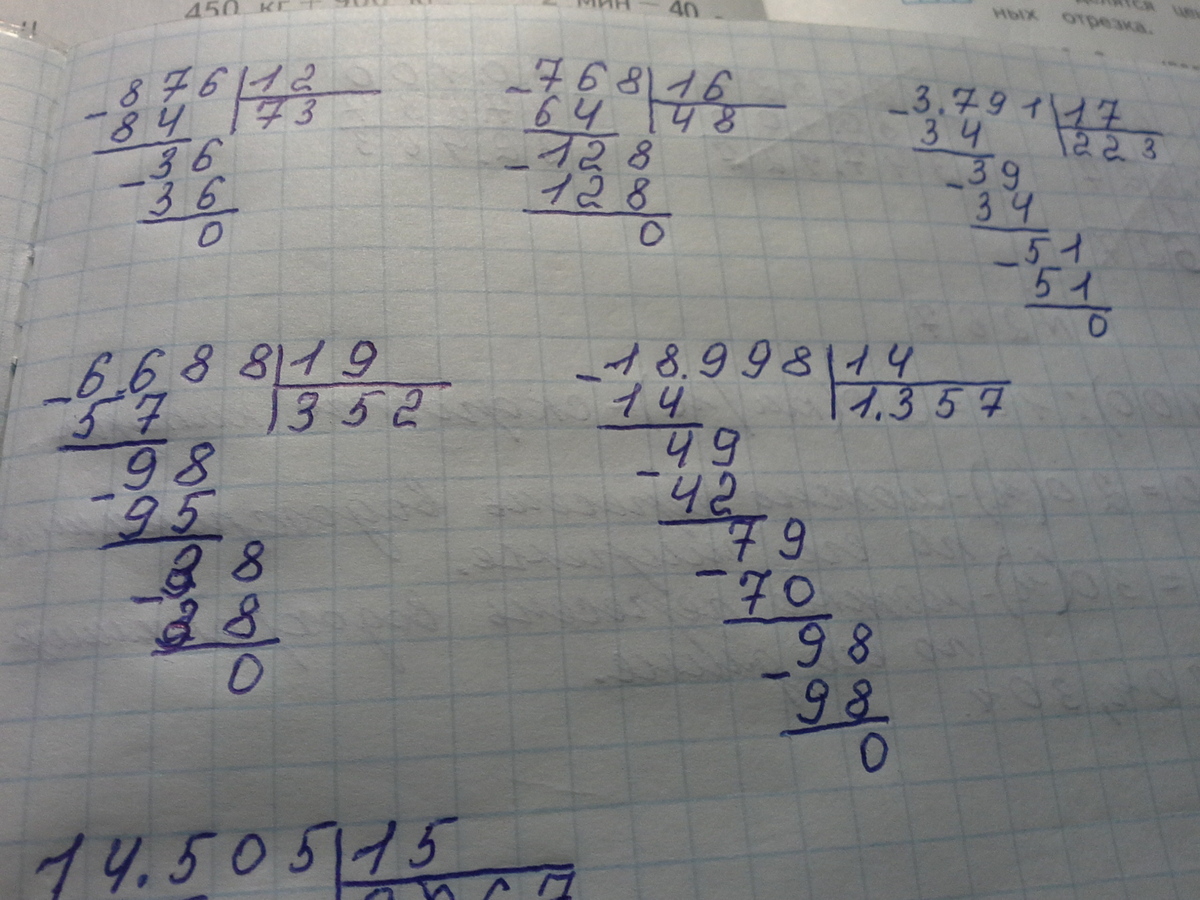 450 кг
2 мин - 40
ных отрезка.
- 876 | 12
84 | 73
- 36
36
0
- 768 | 16
64 | 48
- 128
128
0
- 3.791 | 17
34 | 223
- 39
34
- 51
51
0
- 6.688 | 19
57 | 352
- 98
95
- 38
38
0
- 18.998 | 14
14 | 1.357
- 49
42
- 79
70
- 98
98
0
14.505 | 15